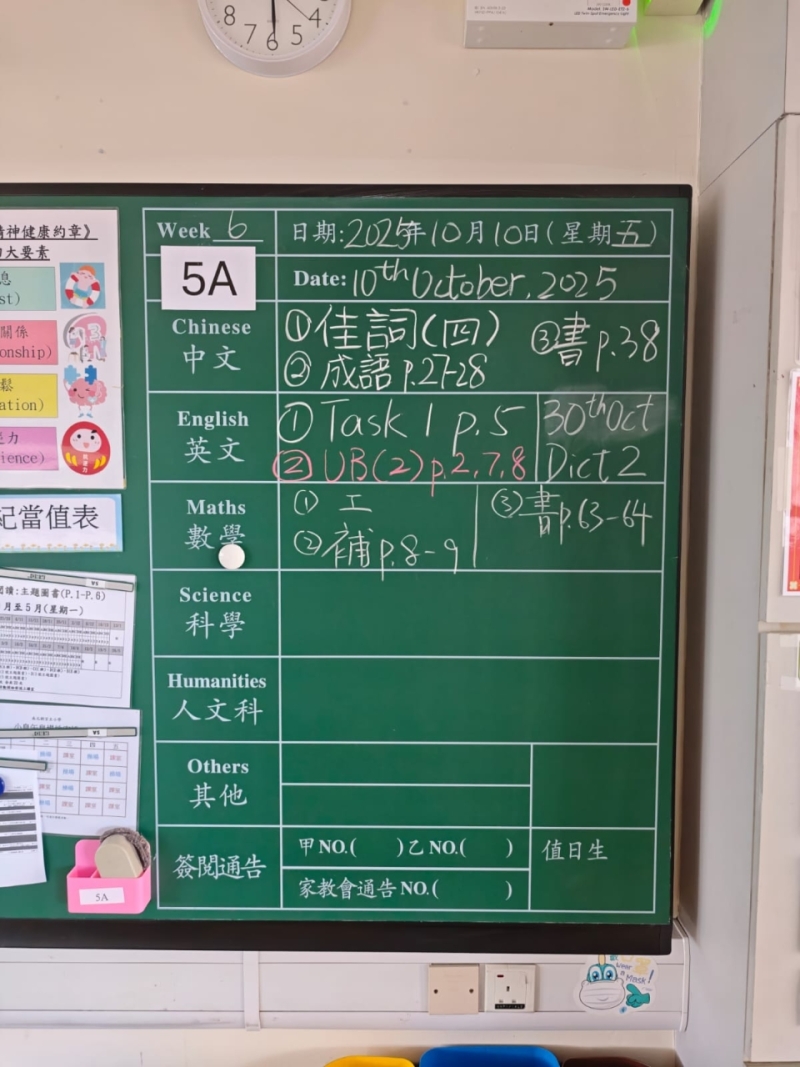 8 7 6 5 4
精神健康約章》
大要素
息
st)
關係
onship)
鬆
ation)
力
ience)
紀當值表
閱讀:主題圖書(P.1-P.6)
月至5月(星期一)
5A
Week 6
日期:2025年10月10日(星期五)
5A
Date: 10th October, 2025
Chinese
中文
①佳詞(四)
②成語 p.27-28
③書 p.38
English
英文
① Task 1 p.5
② UB(2) p.2,7,8
30th Oct
Dict 2
Maths
數學
① 工
② 補 p.8-9
③書 p.63-64
Science
科學
Humanities
人文科
Others
其他
簽閱通告
甲NO.( )乙NO.( )
家教會通告NO.( )
值日生
Wear a Mask!